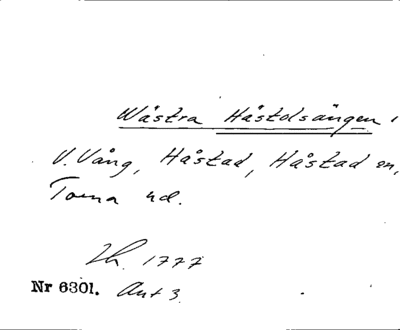 Wästra Håstolsängen,
V. Vång, Håstad, Håstad sn,
Torna hd.
Lh. 1777
Nr 6301. Akt 3.